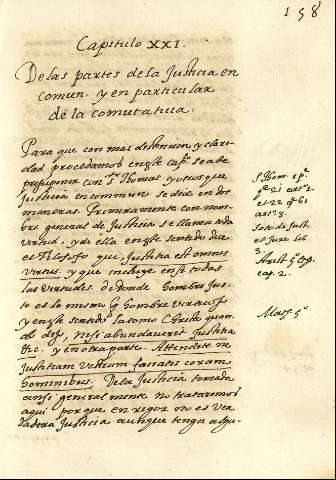 158
Capitulo XXI.
De las partes de la Justicia en
comun. y en particular
de la comutatiua.
Para que con mas distincion y clari
dad procedamos en este capº. se a de
presuponer con Sto Thomas y otros que
Justicia en comun se dice en dos
maneras. Primeramente con nom
bre general de Justicia se llama toda
virtud, y de ella en este sentido dice
el Filosofo que Justitia est omnis
virtus, y que incluye en si todas
las virtudes de donde hombre Jus
to es lo mismo q hombre virtuoso
y en este sentido la tomo Christo quan
do dijo, nisi abundauerit Justitia
&c. y en otra parte. Attendite ne
Justitiam vestram faciatis coram
hominibus. De la Justicia tomada
ansi generalmente no trataremos
aqui porque en rigor no es ver
dadera Justicia aunque tenga algu-
S. Thom. 1ª p.
q. 21 art. 1.
et 22 q. 61
art. 3.
Soto de Just.
et Jure lib
3.
Arist. 5 Eth.
cap. 2.
Matt. 5º